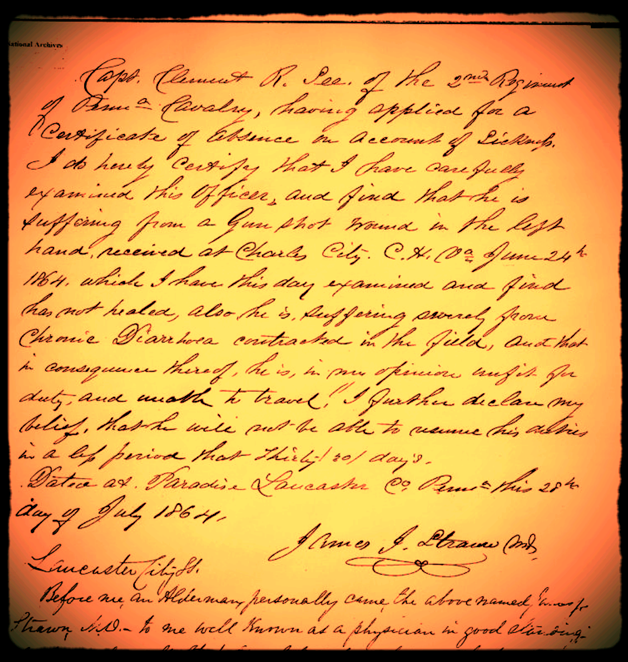 National Archives
Capt. Clement R. See. of the 2nd Regiment
of Penna Cavalry, having applied for a
Certificate of absence on account of Sickness.
I do hereby certify that I have carefully
examined this Officer, and find that he is
suffering from a Gun shot wound in the left
hand, received at Charles City. C.H. Va June 24th
1864. which I have this day examined and find
has not healed, also he is, suffering severely from
Chronic Diarrhoea contracted in the field, and that
in consequence thereof, he is, in my opinion unfit for
duty, and unable to travel. I further declare my
belief, that he will not be able to resume his duties
in a less period that Thirty/30/days.
Dated at. Paradise Lancaster Co Penna this 28th
day of July 1864.
James J. Strawn MD,
Lancaster City SS.
Before me, an Alderman, personally came, the above named,
Strawn, M.D. - to me well known as a physician in good standing